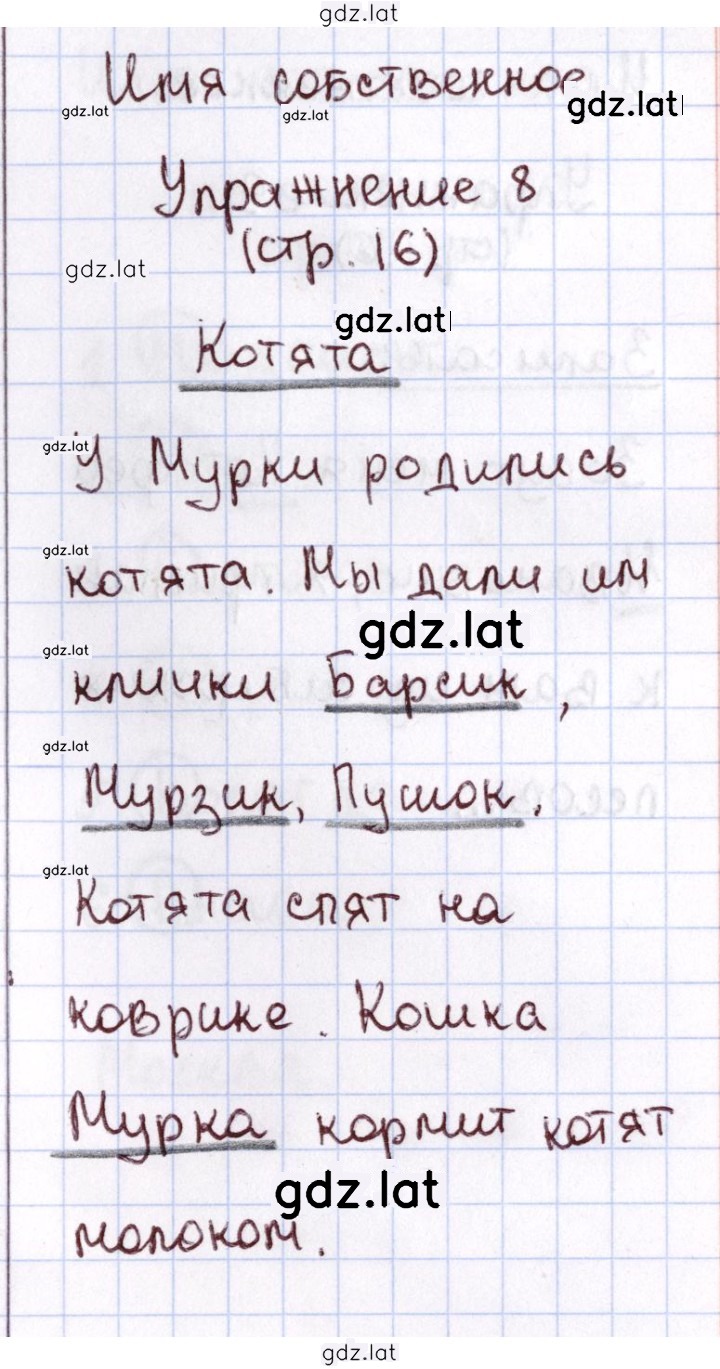 gdz.lat
Имя собственное
gdz.lat gdz.lat gdz.lat
Упражнение 8
(стр. 16)
gdz.lat
gdz.lat
Котята
gdz.lat
У Мурки родились
gdz.lat
котята. Мы дали им
gdz.lat
gdz.lat
клички Барсик,
gdz.lat
Мурзик, Пушок.
gdz.lat
Котята спят на
коврике. Кошка
Мурка кормит котят
gdz.lat
молоком.
gdz.lat